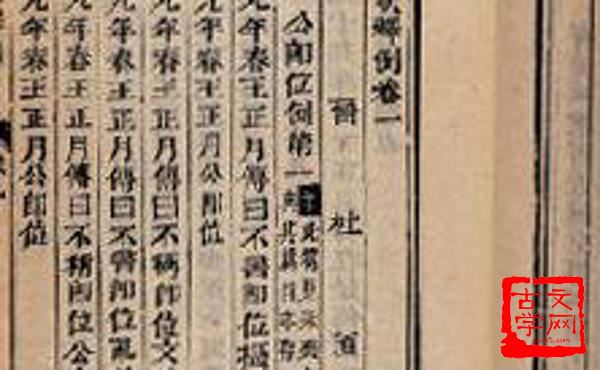 秋釋例卷一
晉 杜 預
公即位例第一
元年春王正月傳曰不書即位攝
元年春王正月公即位
元年春王正月傳曰不稱即位文
元年春王正月傳曰不書即位亂
元年春王正月傳曰不稱即位公
元年春王正月公即位
古文学网